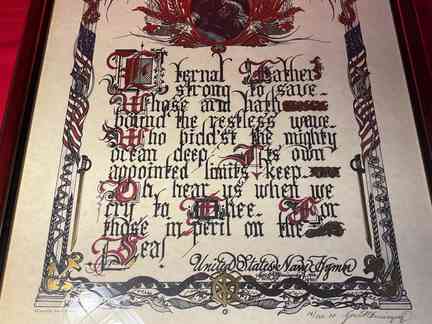 Eternal Father
strong to save
Whose arm hath
bound the restless wave
Who bidd'st the mighty
ocean deep Its own
appointed limits keep
Oh, hear us when we
cry to Thee For
those in peril on the
Sea!
United States Navy Hymn